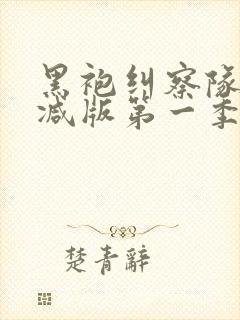 黑袍纠察队
减版第一季
楚青辭